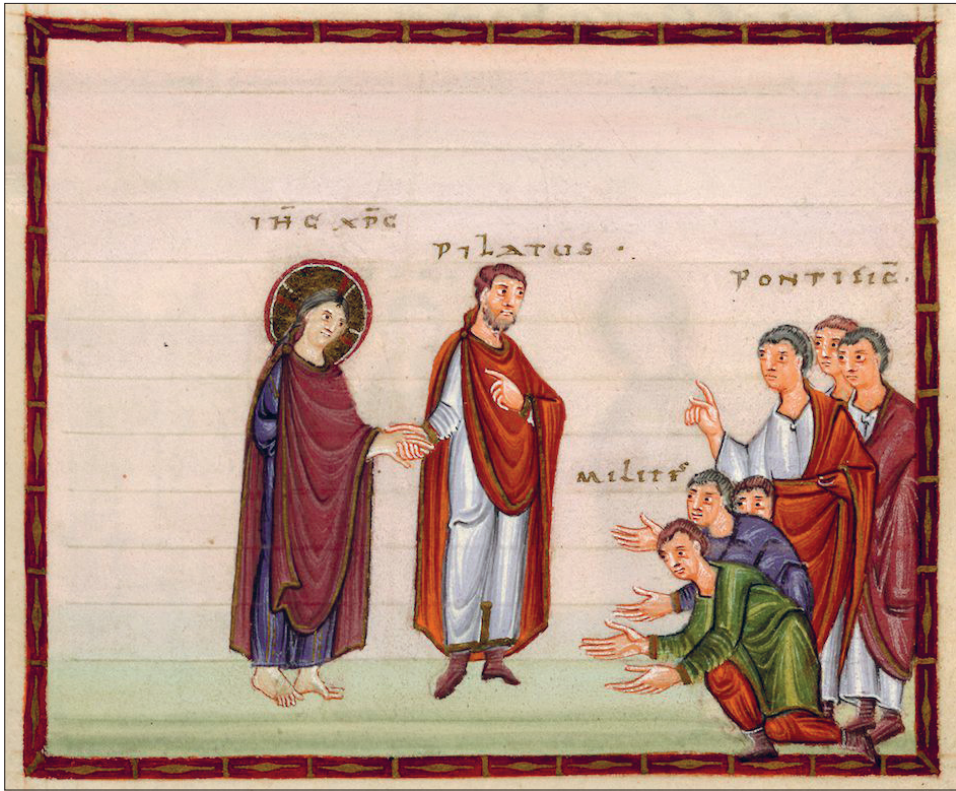 IH̄C XP̄C
PILATUS ·
PONTIFIC̄ ·
MILITES